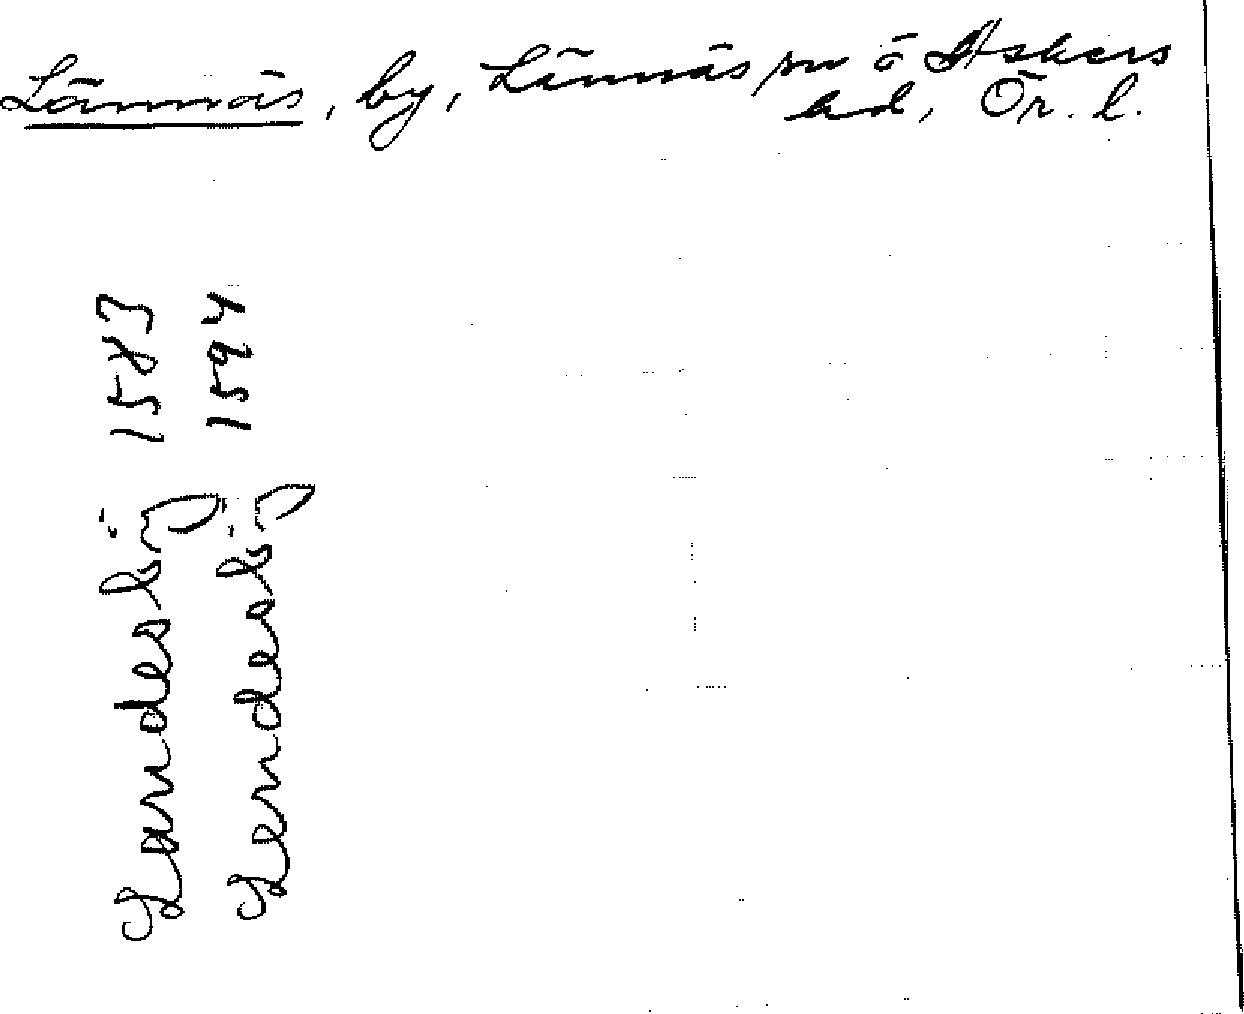 Lännäs, by, Lännäs sn ö Askers
hd, Ör. l.
Landesbÿ 1583
Lendesbÿ 1594